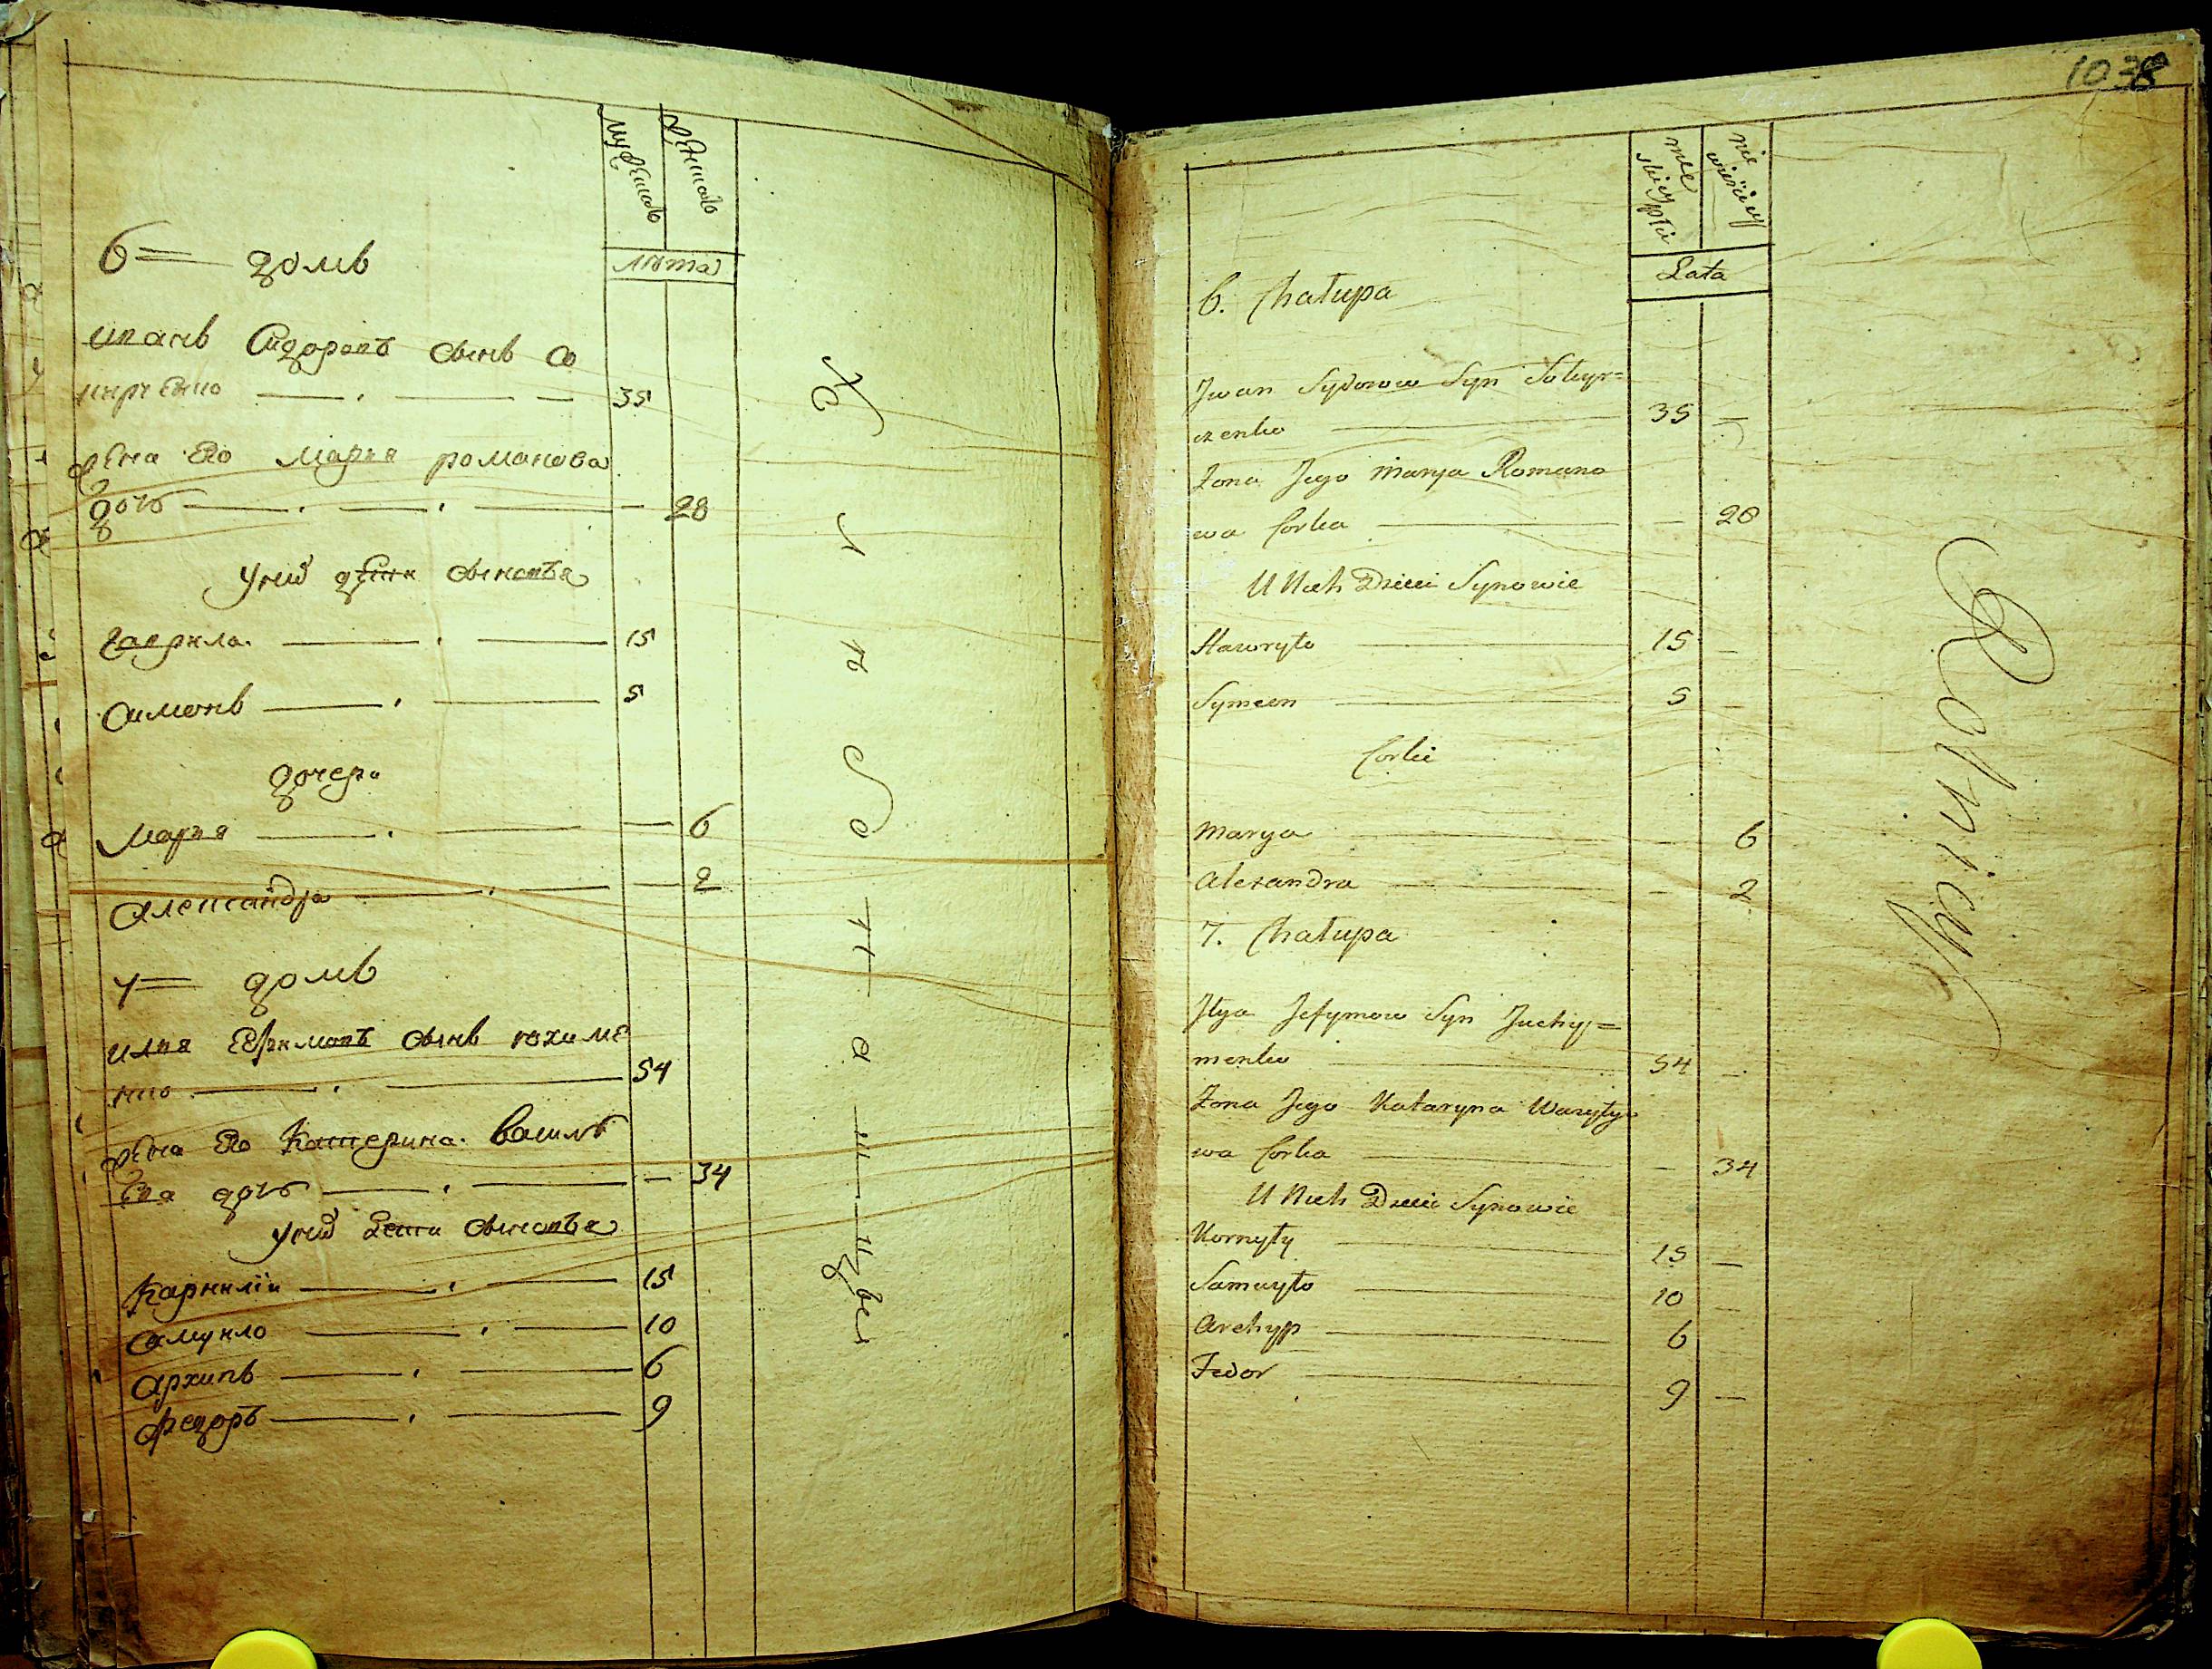 мужеска
женска
лѣта
6 = домъ
иванъ Сидоровъ сынъ со
кирченко — . — — 35
жена его Марья романова
дочь — . — . — — 28
у них дети сыновья
гаврила . — . — 15
симонъ — . — 5
дочери
Марья — . — — 6
Александра — . — — 2
7 = домъ
илья Ефимовъ сынъ юхиме
нко — . — 54
жена его Катерина . Василь
ева дочь — . — — 34
у них дети сыновья
Карнилiи — . — 15
самуило — . — 10
архипъ — . — 6
федоръ — . — 9
Хлѣбопашцы
1038
męskiey płci
niewieściey
Lata
6. Chałupa
Jwan Sydorow Syn Sokyr=
czenko — 35 —
Zona Jego Marya Romano
wa Corka — — 28
U Nich Dzieci Synowie
Hawryło — 15 —
Symeon — 5 —
Corki
Marya — — 6
Alexandra — — 2
7. Chałupa
Jlya Jefymow Syn Juchy=
menko — 54 —
Zona Jego Kataryna Wasyly
wa Corka — — 34
U Nich Dzieci Synowie
Kornyły — 15 —
Samuyło — 10 —
Archyp — 6
Fedor — 9 —
Rolnicy